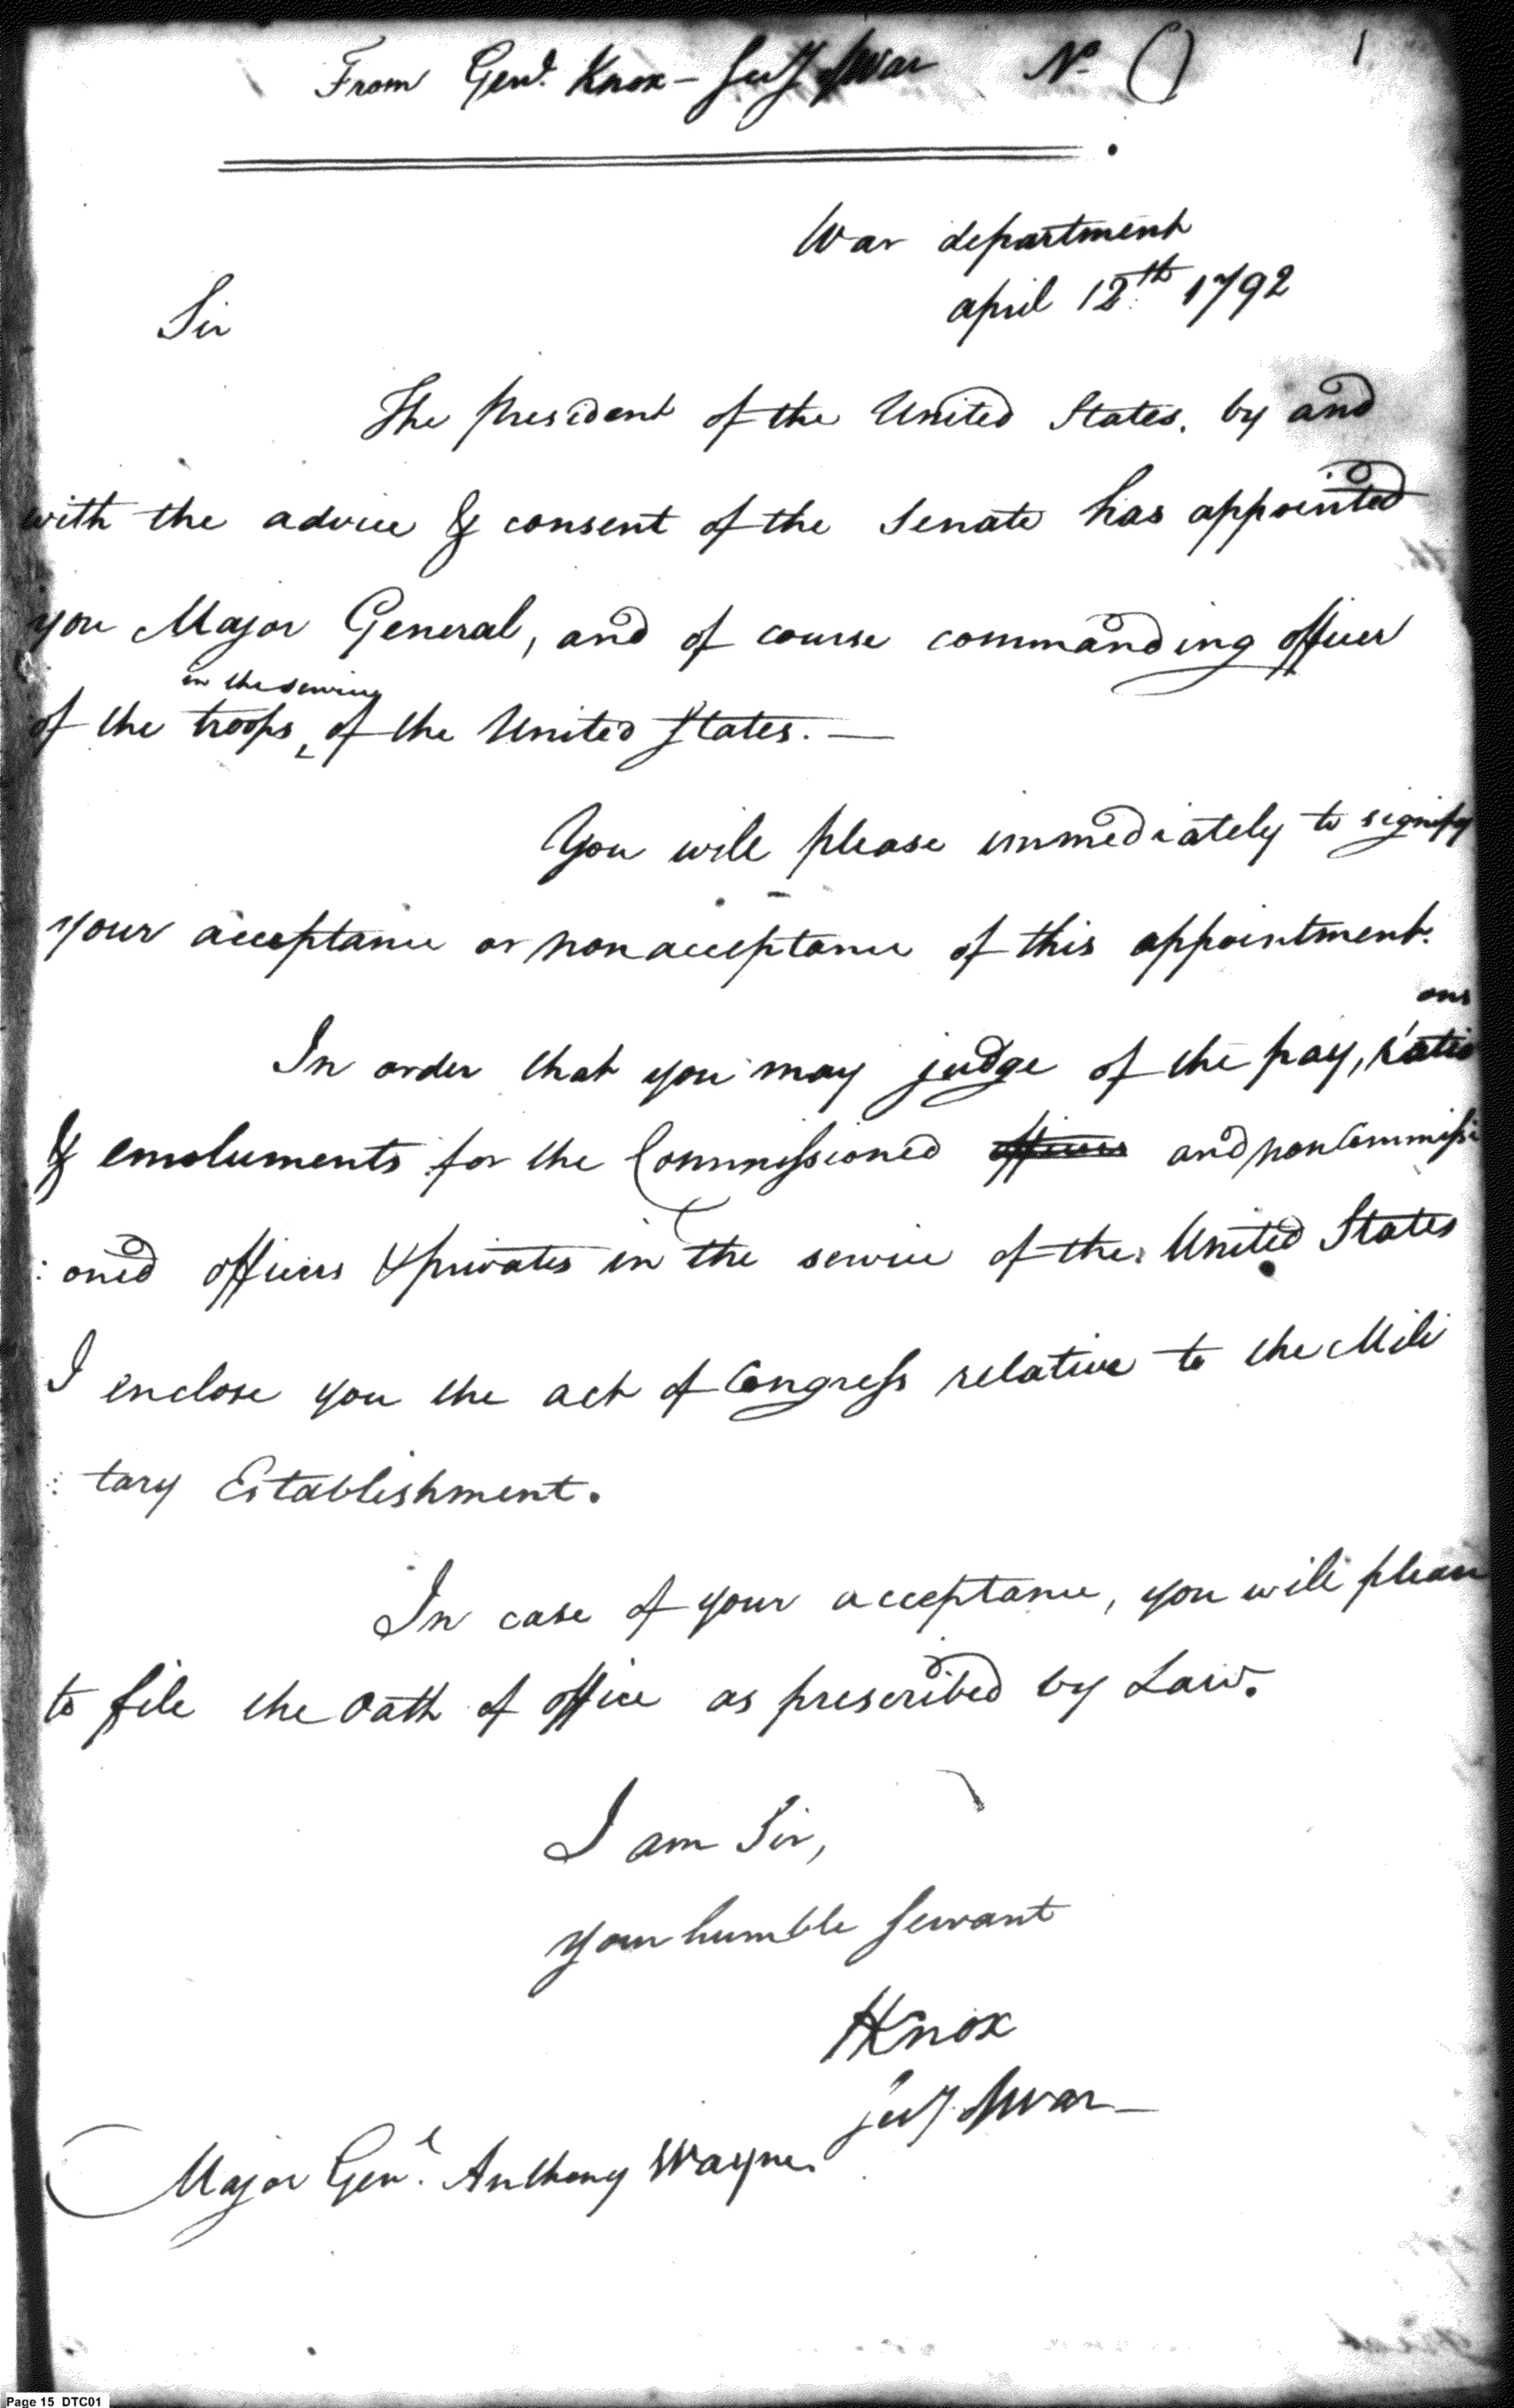 From Genl. Knox – Secy of War No. () 1
War department
april 12th 1792
Sir
The President of the United States, by and
with the advice & consent of the Senate has appointed
you Major General, and of course commanding officer
in the service
of the troops ^ of the United States. —
You will please immediately to signify
your acceptance or nonacceptance of this appointment.
ons
In order that you may judge of the pay, ratio
& emoluments for the Commissioned officers and non Commissi
: oned officers & privates in the service of the United States
I enclose you the act of Congress relative to the Mili
: tary Establishment.
In case of your acceptance, you will please
to file the Oath of office as prescribed by Law.
I am Sir,
your humble servant
HKnox
Secy of War —
Major Genl. Anthony Wayne.
Page 15 DTC01